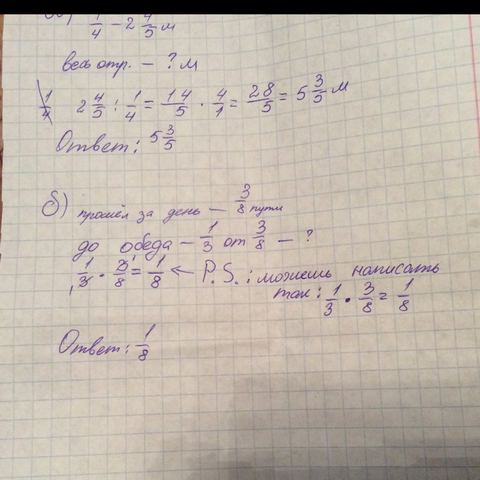 1/4 – 2 4/5 м
весь отр. – ? м
1/4 2 4/5 : 1/4 = 14/5 · 4/1 = 28/5 = 5 3/5 м
Ответ: 5 3/5
б) прошёл за день – 3/8 пути
до обеда – 1/3 от 3/8 – ?
1/3 · 3/8 = 1/8 ← P.S.: можешь написать
так: 1/3 · 3/8 = 1/8
Ответ: 1/8